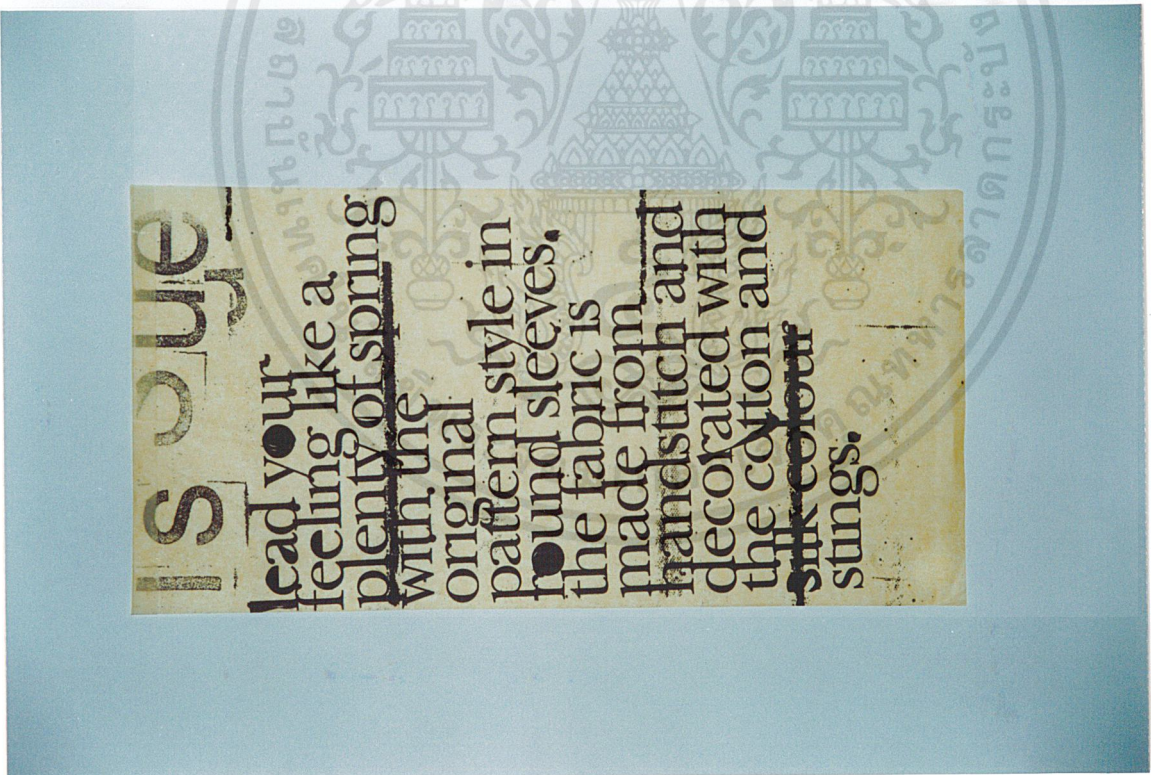 is sue
lead your
feeling like a
plenty of spring
with the
original
pattern style in
round sleeves.
the fabric is
made from
handstitch and
decorated with
the cotton and
silk colour
stings.